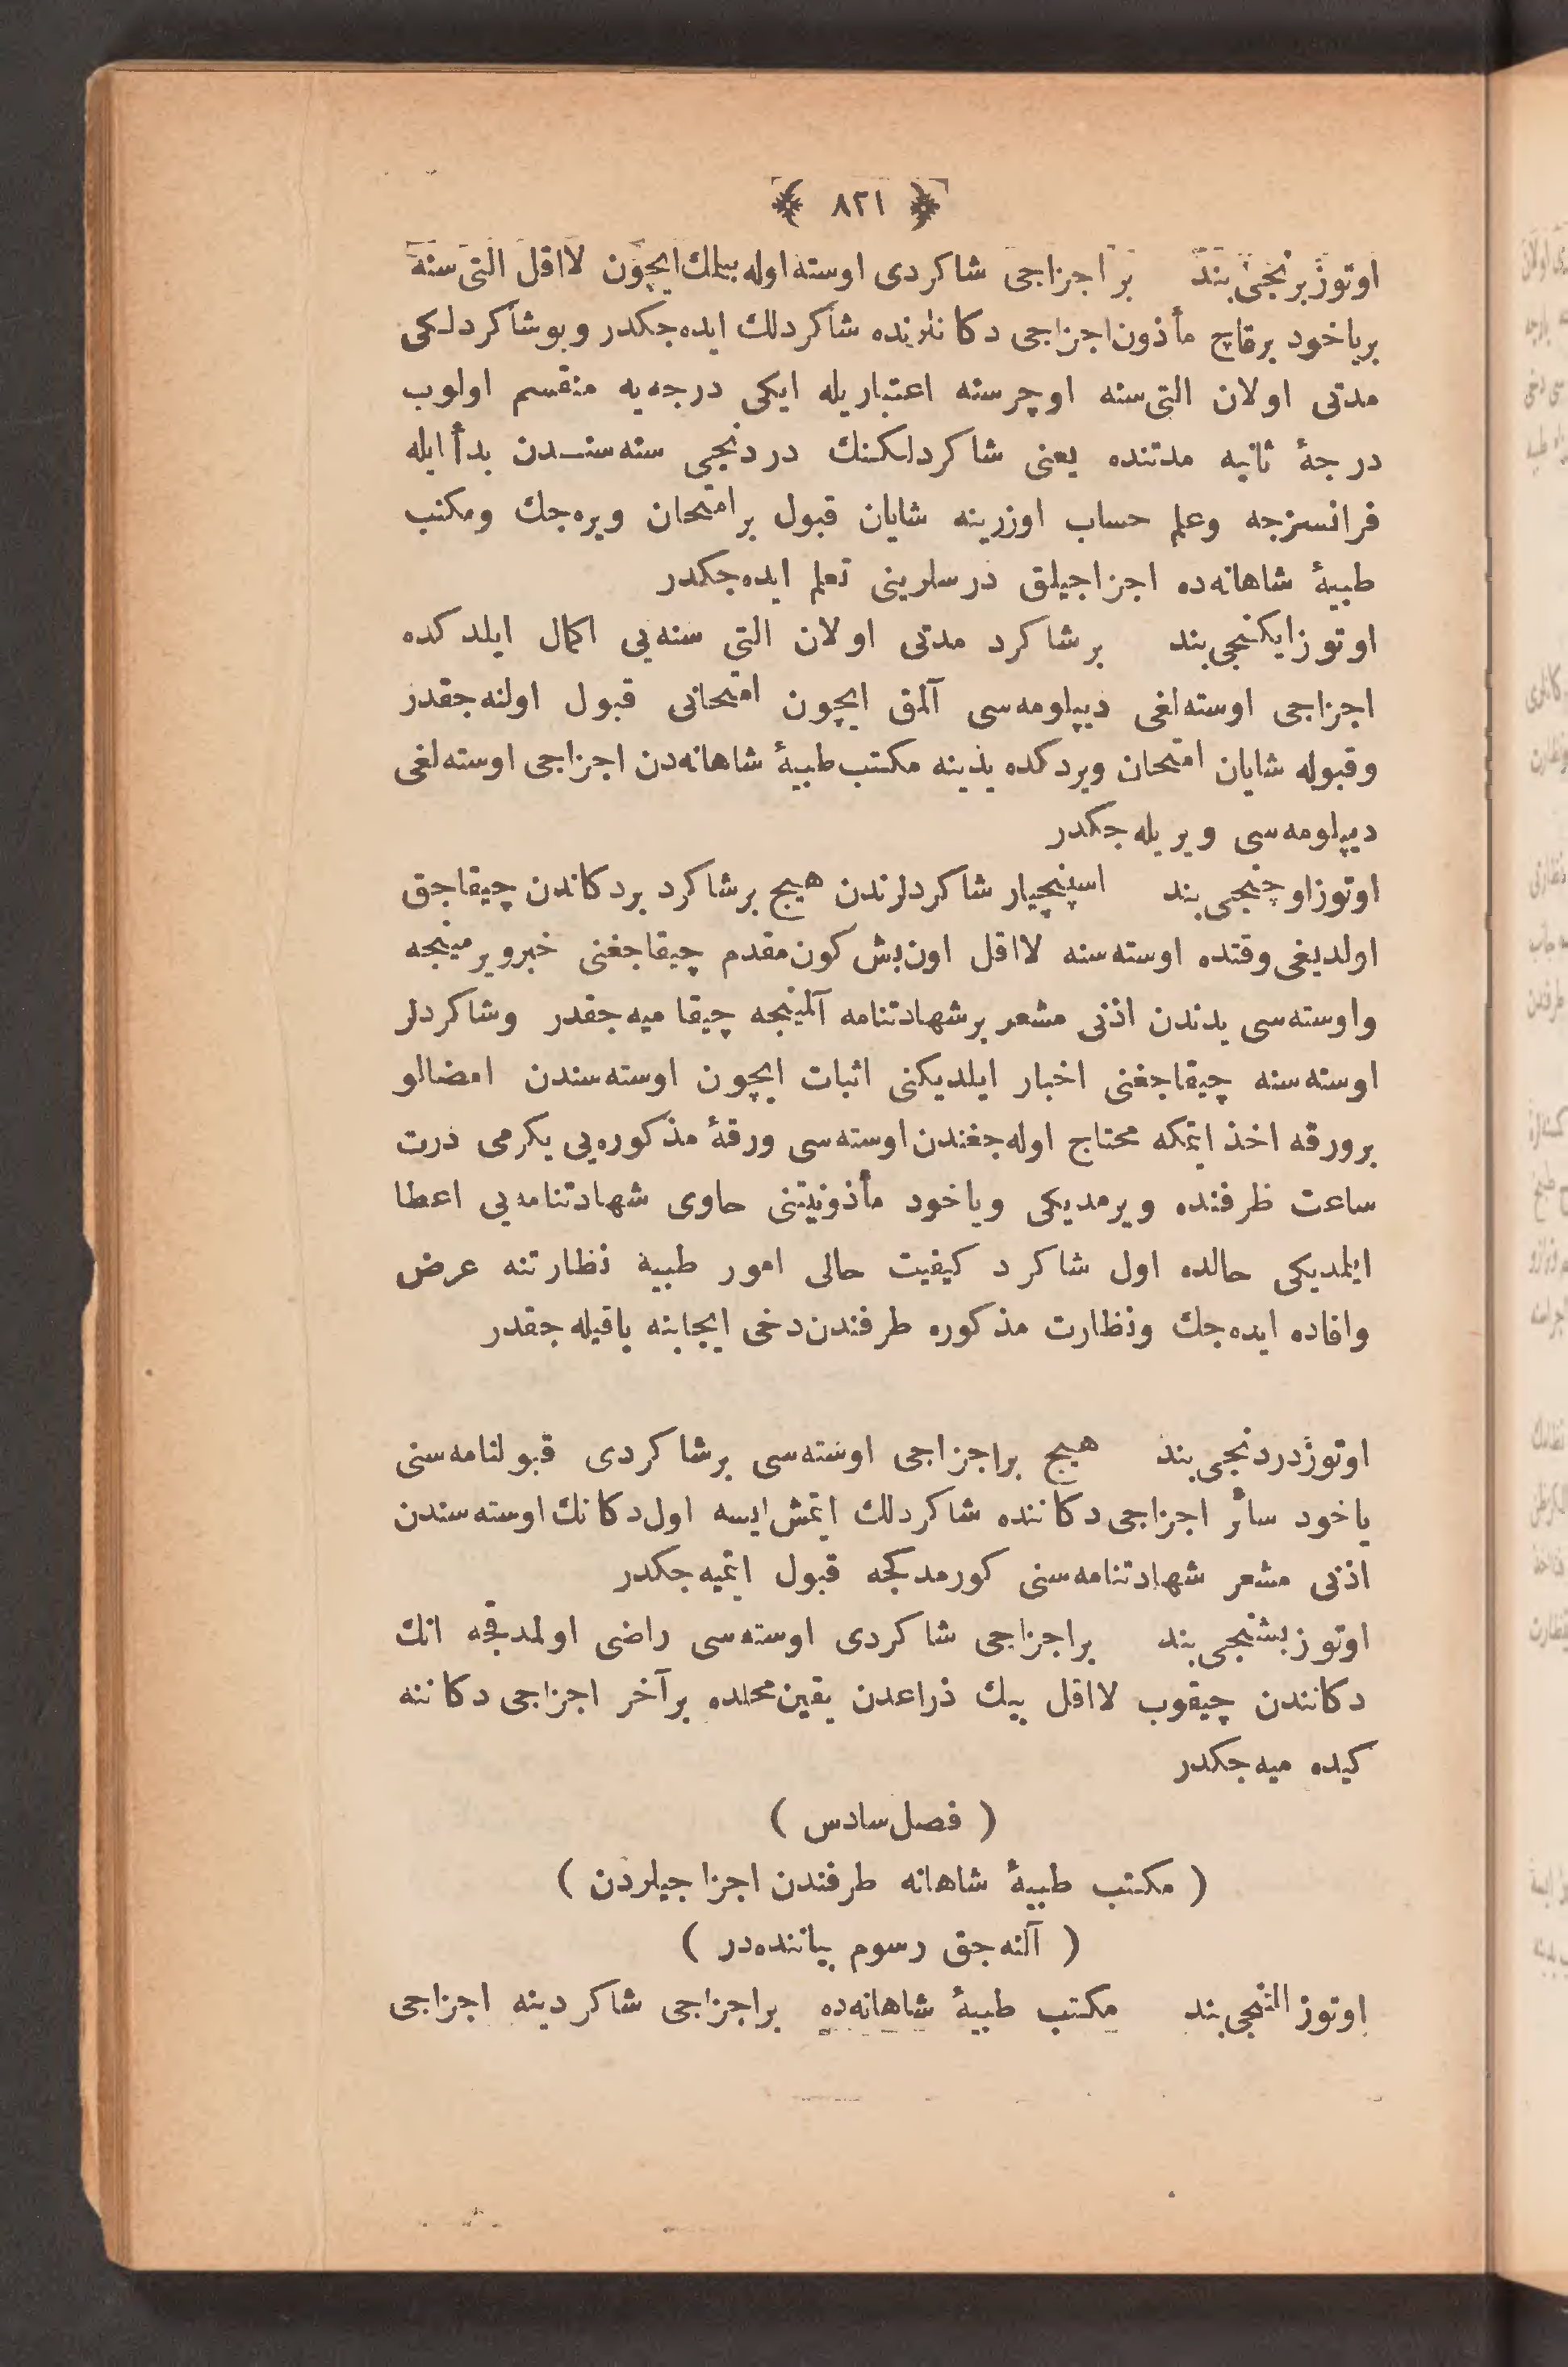 ﴿ ٨٢١ ﴾
اوتوز برنجی بند بر اجزاجی شاكردی اوسته اوله بیلمك ایچون لااقل التی سنه
بر یاخود برقاچ مأذون اجزاجی دكانلرنده شاكردلك ایده جكدر و بو شاكردلكی
مدتی اولان التی سنه اوچر سنه اعتباریله ایكی درجه یه منقسم اولوب
درجهٔ ثانیه مدتنده یعنی شاكردلكنك دردنجی سنه سندن بدأ ایله
فرانسزجه وعلم حساب اوزرینه شایان قبول بر امتحان ویره جك ومكتب
طبیهٔ شاهانه ده اجزاجیلق درسلرینی تعلم ایده جكدر
اوتوز ایكنجی بند بر شاكرد مدتی اولان التی سنه یی اكمال ایلدكده
اجزاجی اوسته لغی دیپلومه سی آلمق ایچون امتحانی قبول اولنه جقدر
وقبوله شایان امتحان ویردكده یدینه مكتب طبیهٔ شاهانه دن اجزاجی اوسته لغی
دیپلومه سی ویریله جكدر
اوتوز اوچنجی بند اسپنچیار شاكردلرندن هیچ بر شاكرد بر دكاندن چیقاجق
اولدیغی وقتده اوسته سنه لااقل اون بش كون مقدم چیقاجغنی خبر ویرمینجه
واوسته سی یدندن اذنی مشعر بر شهادتنامه آلمینجه چیقامیه جقدر وشاكردلر
اوسته سنه چیقاجغنی اخبار ایلدیكنی اثبات ایچون اوسته سندن امضالو
بر ورقه اخذ ایتمكه محتاج اوله جغندن اوسته سی ورقهٔ مذكوره یی یكرمی درت
ساعت ظرفنده ویرمدیكی ویاخود مأذونیتنی حاوی شهادتنامه یی اعطا
ایلمدیكی حالده اول شاكرد كیفیت حالی امور طبیه نظارتنه عرض
وافاده ایده جك ونظارت مذكوره طرفندن دخی ایجابنه باقیله جقدر
اوتوز دردنجی بند هیچ بر اجزاجی اوسته سی بر شاكردی قبولنامه سنی
یاخود سائر اجزاجی دكاننده شاكردلك ایتمش ایسه اول دكانك اوسته سندن
اذنی مشعر شهادتنامه سنی كورمدكجه قبول ایتمیه جكدر
اوتوز بشنجی بند بر اجزاجی شاكردی اوسته سی راضی اولمدقجه انك
دكانندن چیقوب لااقل بیك ذراعدن یقین محلده بر آخر اجزاجی دكاننه
كیده میه جكدر
( فصل سادس )
( مكتب طبیهٔ شاهانه طرفندن اجزاجیلردن )
( آلنه جق رسوم بیاننده در )
اوتوز التنجی بند مكتب طبیهٔ شاهانه ده بر اجزاجی شاكردینه اجزاجی